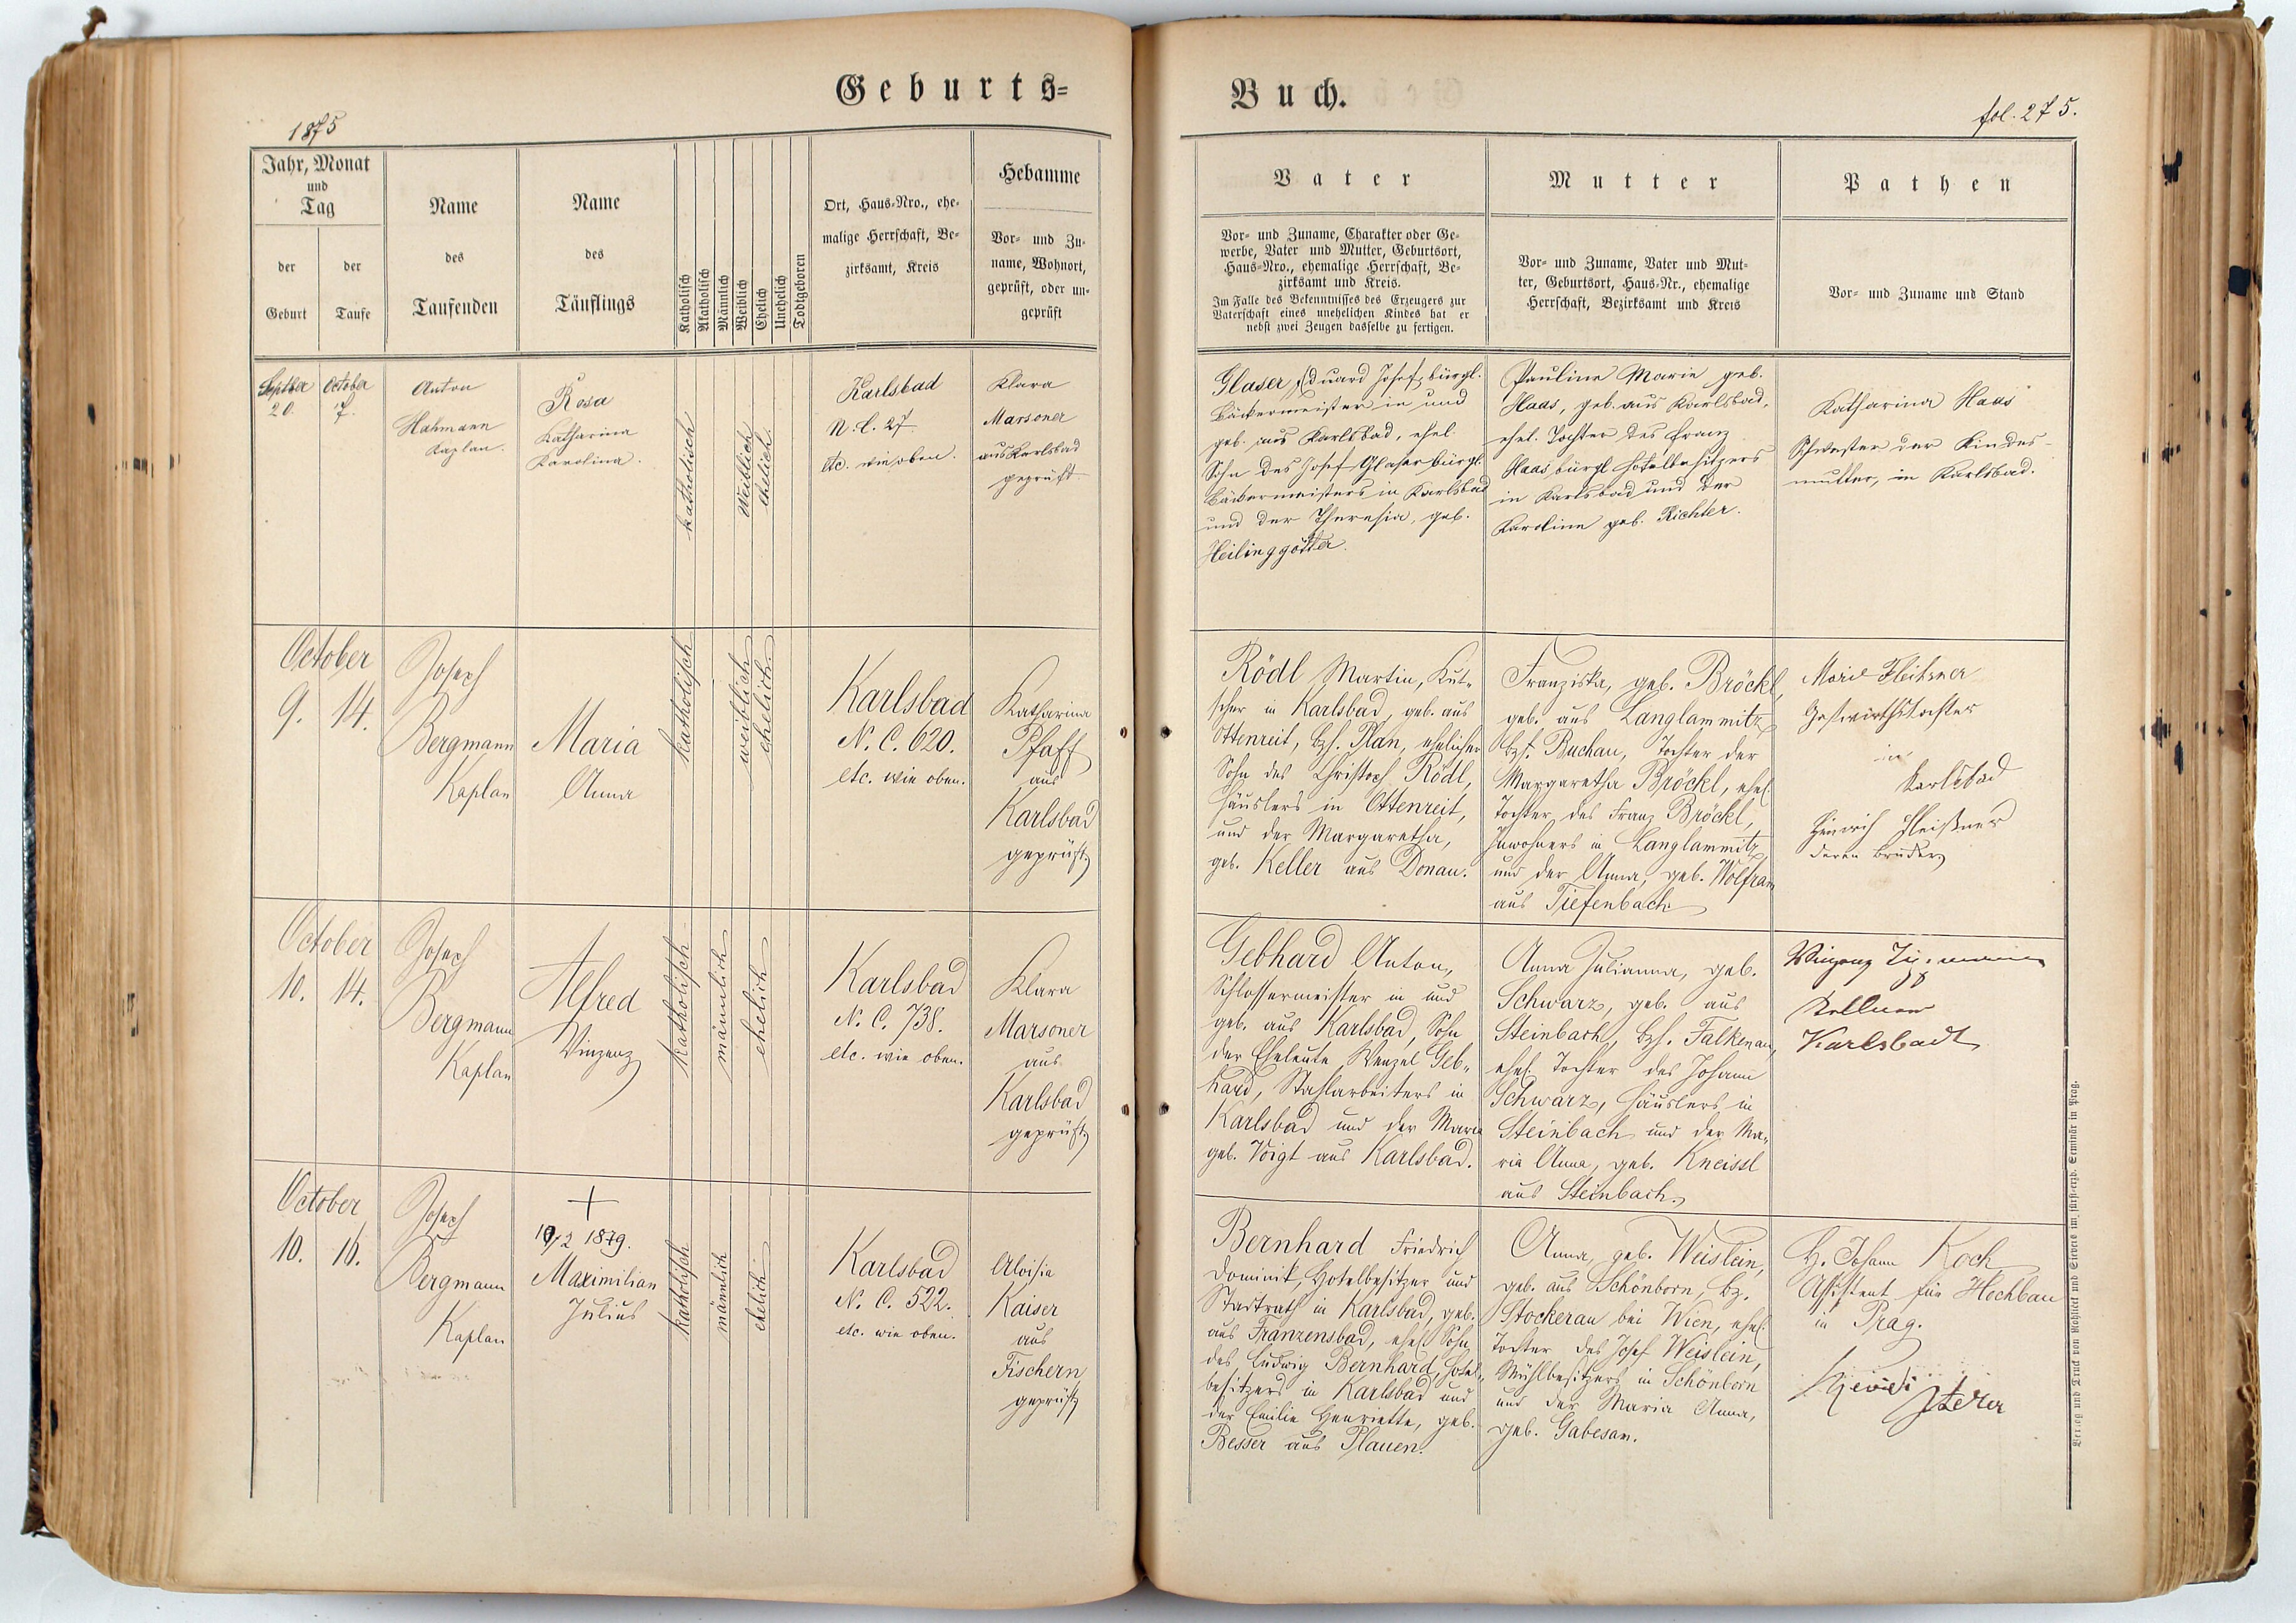 Geburts=
Buch.
1875
fol. 275.
Jahr, Monat
und
Tag
der
Geburt
der
Taufe
Name
des
Taufenden
Name
des
Täuflings
Katholisch
Akatholisch
Männlich
Weiblich
Ehelich
Unehelich
Todtgeboren
Ort, Haus-Nro., ehe-
malige Herrschaft, Be-
zirksamt, Kreis
Hebamme
Vor- und Zu-
name, Wohnort,
geprüft, oder un-
geprüft
Vater
Vor- und Zuname, Charakter oder Ge-
werbe, Vater und Mutter, Geburtsort,
Haus-Nro., ehemalige Herrschaft, Be-
zirksamt und Kreis.
Im Falle des Bekenntnisses des Erzeugers zur
Vaterschaft eines unehelichen Kindes hat er
nebst zwei Zeugen dasselbe zu fertigen.
Mutter
Vor- und Zuname, Vater und Mut-
ter, Geburtsort, Haus-Nr., ehemalige
Herrschaft, Bezirksamt und Kreis
Pathen
Vor- und Zuname und Stand
Septber
20.
October
7.
Anton
Hahmann
Kaplan.
Rosa
Katharina
Karolina.
katholisch
Weiblich
ehelich.
Karlsbad
N. C. 27.
etc. wie oben.
Klara
Marsoner
aus Karlsbad
geprüft.
Glaser, Eduard Josef, bürgl.
Bäckermeister in und
geb. aus Karlsbad, ehel.
Sohn des Josef Glaser bürgl.
Bäckermeisters in Karlsbad
und der Theresia, geb.
Heilinggötter.
Pauline Marie geb.
Haas, geb. aus Karlsbad,
ehel. Tochter des Franz
Haas, bürgl. Hotelbesitzers
in Karlsbad und der
Karoline geb. Richter.
Katharina Haas
Schwester der Kindes-
mutter, in Karlsbad.
October
9. 14.
Joseph
Bergmann
Kaplan
Maria
Anna
katholisch
weiblich
ehelich.
Karlsbad
N. C. 620.
etc. wie oben.
Katharina
Pfaff
aus
Karlsbad
geprüft
Rödl Martin, Kut-
scher in Karlsbad, geb. aus
Ottenreit, Bzh. Plan, ehelicher
Sohn des Christoph Rödl,
Häuslers in Ottenreit,
und der Margaretha,
geb. Keller aus Donau.
Franziska, geb. Bröckl,
geb. aus Langlammitz
Bzh. Buchau, Tochter der
Margaretha Bröckl, ehel.
Tochter des Franz Bröckl,
Inwohners in Langlammitz,
und der Anna, geb. Wolfram
aus Tiefenbach
Marie Fleissner
Gastwirthstochter
in
Karlsbad
Heinrich Fleißner
deren Bruder
October
10. 14.
Joseph
Bergmann
Kaplan
Alfred
Vinzenz
katholisch
männlich
ehelich
Karlsbad
N. C. 738.
etc. wie oben.
Klara
Marsoner
aus
Karlsbad
geprüft
Gebhard Anton,
Schlossermeister in und
geb. aus Karlsbad, Sohn
der Eheleute Wenzel Geb-
hard, Stahlarbeiters in
Karlsbad und der Maria
geb. Voigt aus Karlsbad.
Anna Julianna, geb.
Schwarz, geb. aus
Steinbach, Bzh. Falkenau,
ehel. Tochter des Johann
Schwarz, Häuslers in
Steinbach und der Ma-
ria Anna, geb. Kneissl
aus Steinbach.
Vinzenz
Kellner
Karlsbadt
October
10. 16.
Joseph
Bergmann
Kaplan
+
10/12 1879.
Maximilian
Julius
katholisch
männlich
ehelich
Karlsbad
N. C. 522.
etc. wie oben.
Aloisia
Kaiser
aus
Fischern
geprüft
Bernhard Friedrich
Dominik, Hotelbesitzer und
Stadtrath in Karlsbad, geb.
aus Franzensbad, ehel. Sohn
des Ludwig Bernhard, Hotel-
besitzers in Karlsbad und
der Emilie Henriette, geb.
Besser aus Plauen.
Anna, geb. Weislein,
geb. aus Schönborn, Bz.
Stockerau bei Wien, ehel.
Tochter des Josef Weislein,
Mühlbesitzers in Schönborn
und der Maria Anna,
geb. Gabesam.
H. Johann Koch
Assistent für Hochbau
in Prag.
Verlag und Druck von Rohliček und Sievers im fürst-erzb. Seminär in Prag.